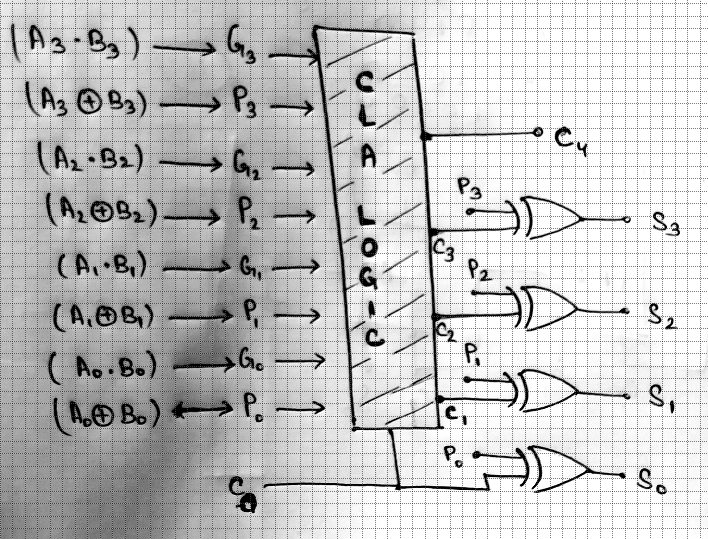 (A₃ · B₃) → G₃ →
(A₃ ⊕ B₃) → P₃ →
(A₂ · B₂) → G₂ →
(A₂ ⊕ B₂) → P₂ →
(A₁ · B₁) → G₁ →
(A₁ ⊕ B₁) → P₁ →
(A₀ · B₀) → G₀ →
(A₀ ⊕ B₀) ↔ P₀ →
C₀
CLA LOGIC
C₄
P₃
C₃
S₃
P₂
C₂
S₂
P₁
C₁
S₁
P₀
S₀